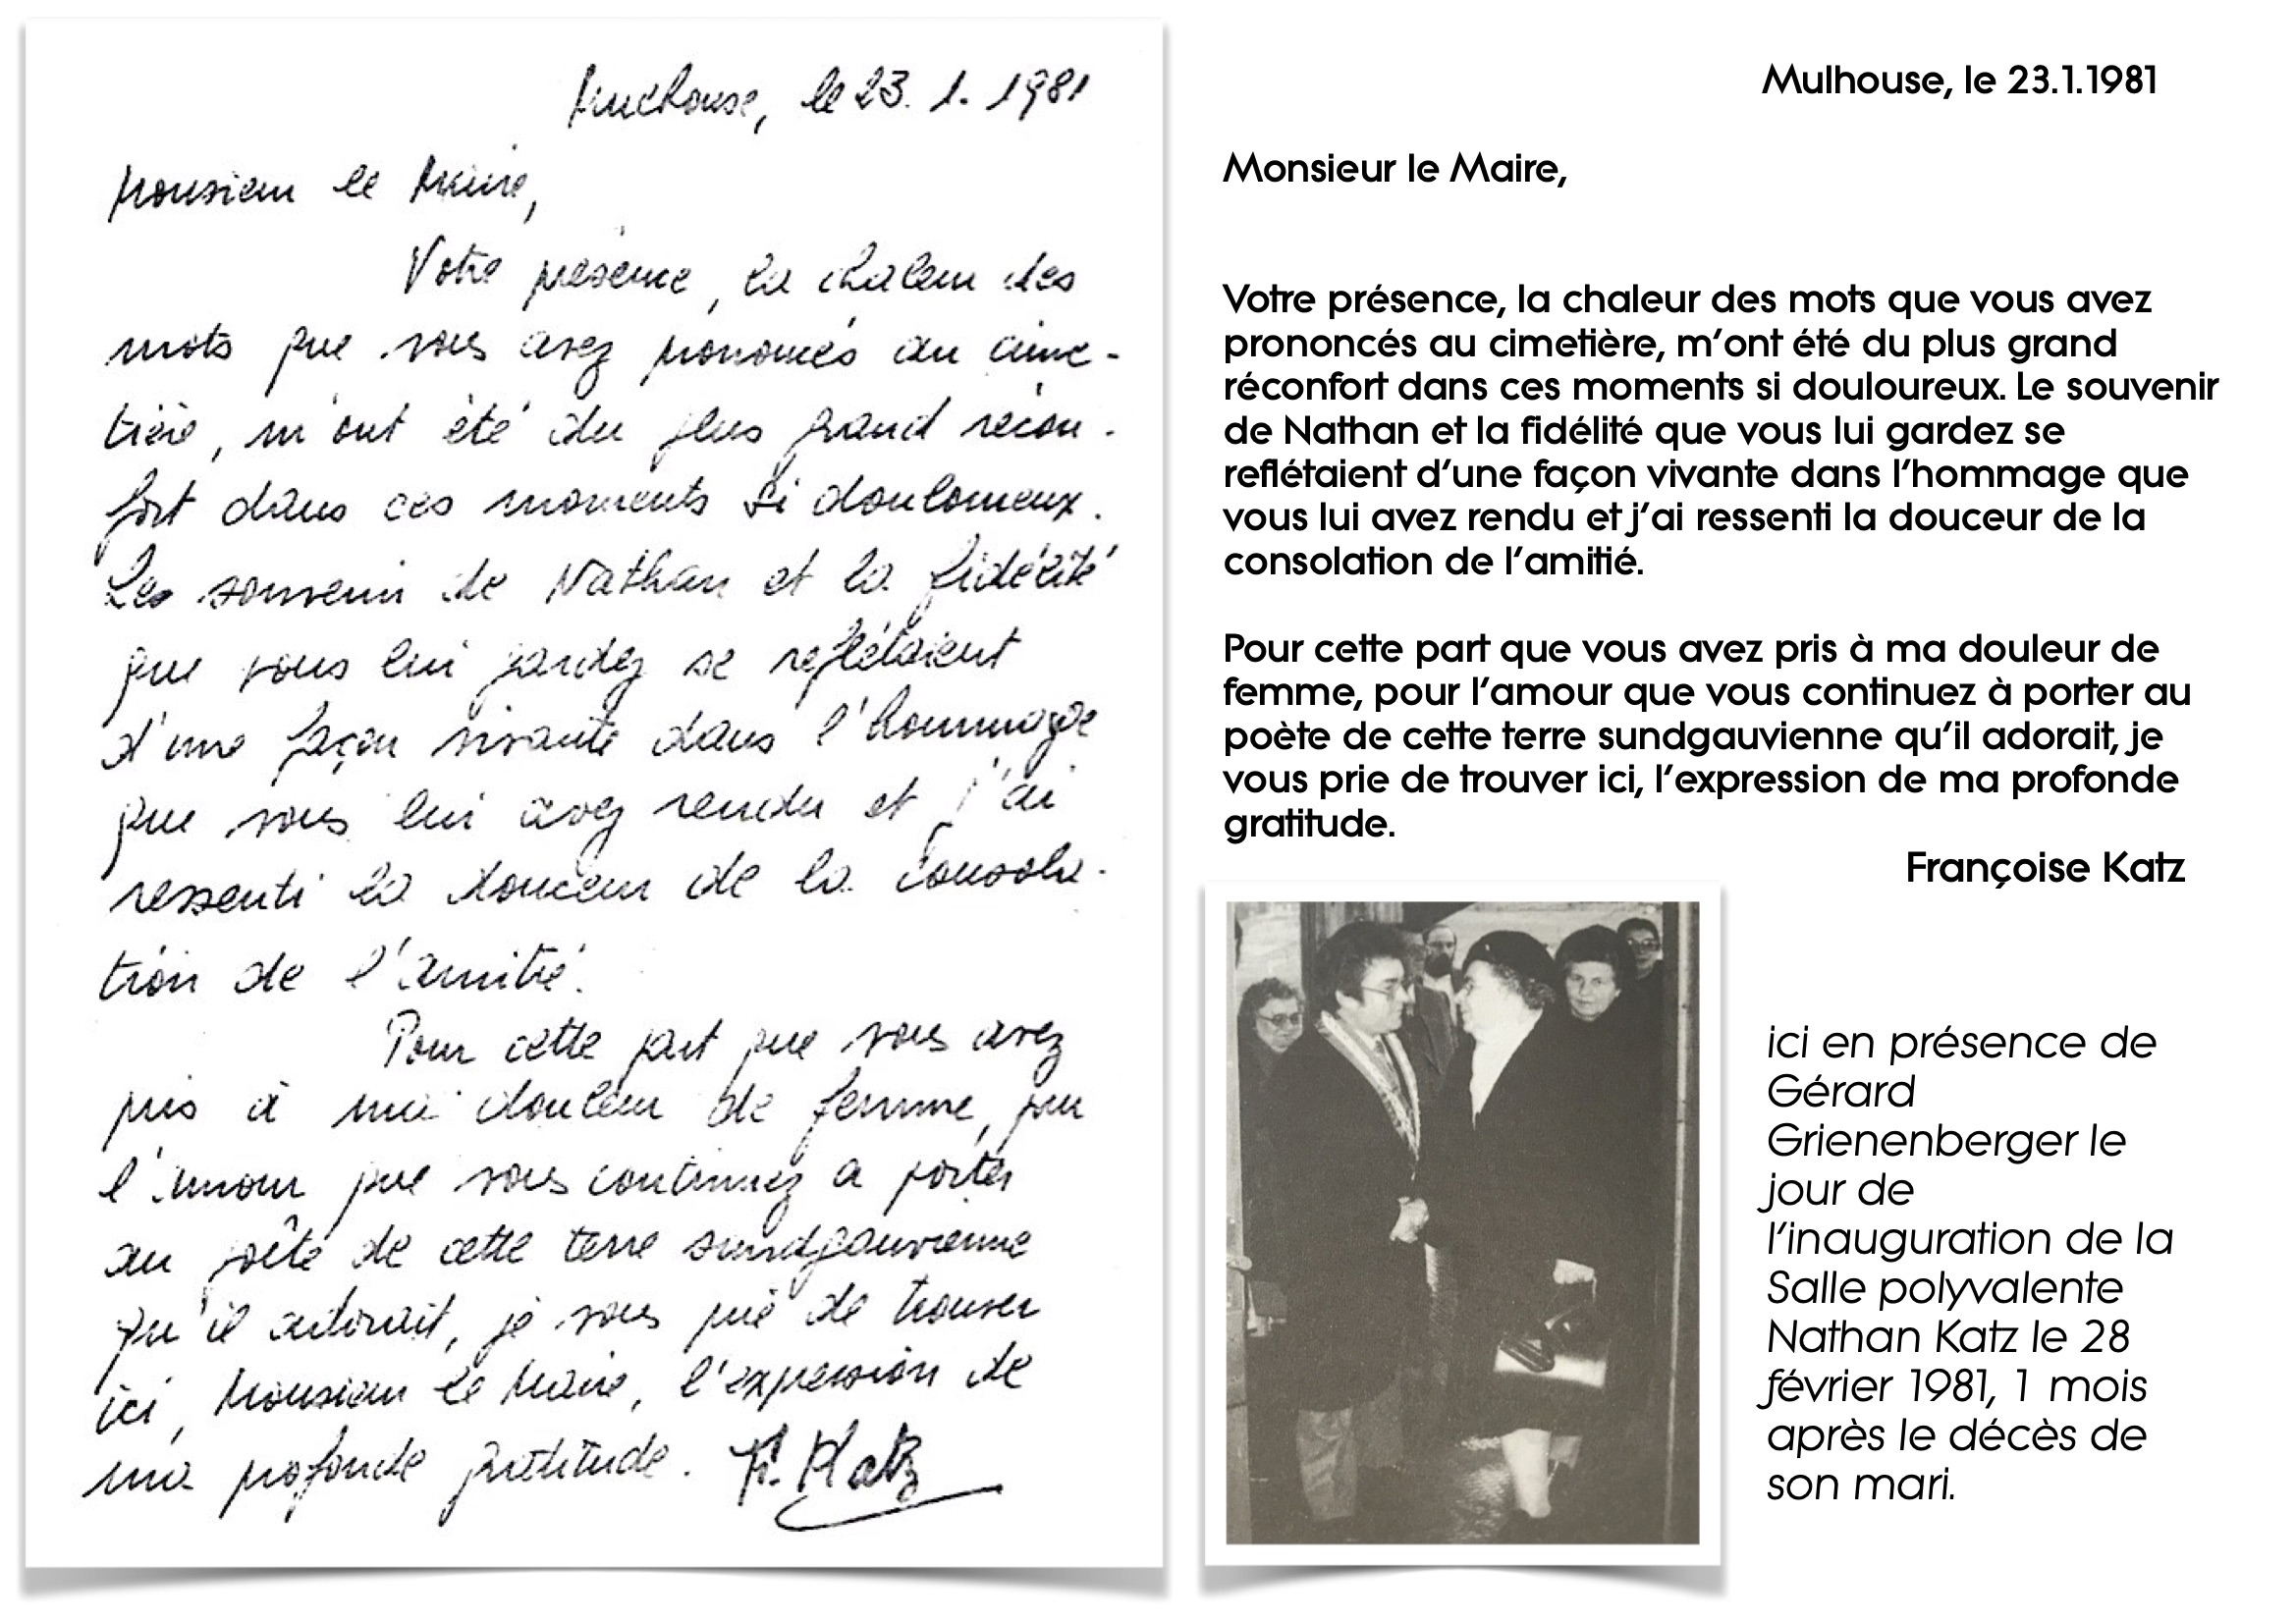 Mulhouse, le 23. 1. 1981
Monsieur le Maire,
Votre présence, la chaleur des
mots que vous avez prononcés au cime-
tière, m'ont été du plus grand récon-
fort dans ces moments si douloureux.
Le souvenir de Nathan et la fidélité
que vous lui gardez se reflétaient
d'une façon vivante dans l'hommage
que vous lui avez rendu et j'ai
ressenti la douceur de la consola-
tion de l'amitié.
Pour cette part que vous avez
pris à ma douleur de femme, pour
l'amour que vous continuez a porter
au poète de cette terre sundgauvienne
qu'il adorait, je vous prie de trouver
ici, Monsieur le Maire, l'expression de
ma profonde gratitude. F. Katz
Mulhouse, le 23.1.1981
Monsieur le Maire,
Votre présence, la chaleur des mots que vous avez
prononcés au cimetière, m’ont été du plus grand
réconfort dans ces moments si douloureux. Le souvenir
de Nathan et la fidélité que vous lui gardez se
reflétaient d’une façon vivante dans l’hommage que
vous lui avez rendu et j’ai ressenti la douceur de la
consolation de l’amitié.
Pour cette part que vous avez pris à ma douleur de
femme, pour l’amour que vous continuez à porter au
poète de cette terre sundgauvienne qu’il adorait, je
vous prie de trouver ici, l’expression de ma profonde
gratitude.
Françoise Katz
ici en présence de
Gérard
Grienenberger le
jour de
l’inauguration de la
Salle polyvalente
Nathan Katz le 28
février 1981, 1 mois
après le décès de
son mari.